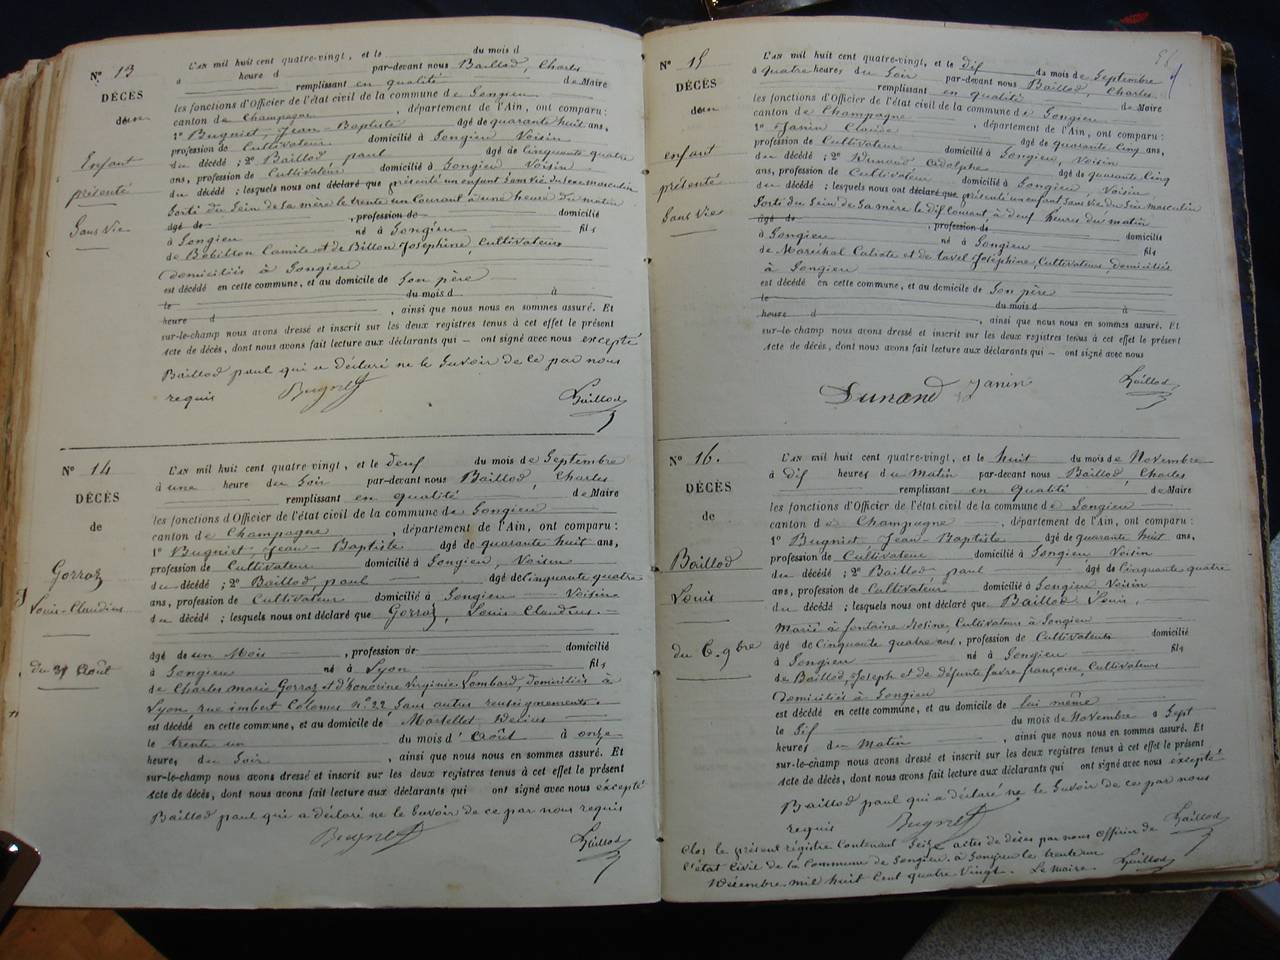 Nº 13
DÉCÈS
d'un
Enfant
présenté
Sans Vie
L'AN mil huit cent quatre-vingt, et le du mois d
à heure d par-devant nous Baillod, Charles
remplissant en qualité de Maire
les fonctions d'Officier de l'état civil de la commune de Songieu
canton de Champagne, département de l'Ain, ont comparu :
1º Bugniet Jean-Baptiste âgé de quarante huit ans,
profession de Cultivateur domicilié à Songieu Voisin
du décédé ; 2º Baillod, paul âgé de Cinquante quatre
ans, profession de Cultivateur domicilié à Songieu Voisin
du décédé ; lesquels nous ont déclaré que présenté un enfant Sans Vie du sexe masculin
Sorti du Sein de Sa mère le trente un Courant à une heure du matin
âgé de , profession de domicilié
à Songieu né à Songieu fils
de Bobillon Camile et de Billon Joséphine, Cultivateurs
domiciliés à Songieu
est décédé en cette commune, et au domicile de Son père
le du mois d à
heure d , ainsi que nous nous en sommes assuré. Et
sur-le-champ nous avons dressé et inscrit sur les deux registres tenus à cet effet le présent
acte de décès, dont nous avons fait lecture aux déclarants qui – ont signé avec nous excepté
Baillod paul qui a déclaré ne le Savoir de Ce par nous
requis Bugniet Baillod
Nº 14
DÉCÈS
de
Gorraz
Louis-Claudius
du 31 Août
L'AN mil huit cent quatre-vingt, et le deuf du mois de Septembre
à une heure du Soir par-devant nous Baillod, Charles
remplissant en qualité de Maire
les fonctions d'Officier de l'état civil de la commune de Songieu
canton de Champagne, département de l'Ain, ont comparu :
1º Bugniet Jean-Baptiste âgé de quarante huit ans,
profession de Cultivateur domicilié à Songieu, Voisin
du décédé ; 2º Baillod, paul âgé de Cinquante quatre
ans, profession de Cultivateur domicilié à Songieu Voisin
du décédé ; lesquels nous ont déclaré que Gorraz, Louis-Claudius.
âgé de un Mois , profession de domicilié
à Songieu né à Lyon fils
de Charles marie Gorraz et d'honorine Virginie Lombard, domiciliés à
Lyon, rue imbert Colomes nº 22, Sans autres renseignements.
est décédé en cette commune, et au domicile de Martellet
le trente un du mois d'Août à onze
heures du Soir , ainsi que nous nous en sommes assuré. Et
sur-le-champ nous avons dressé et inscrit sur les deux registres tenus à cet effet le présent
acte de décès, dont nous avons fait lecture aux déclarants qui ont signé avec nous excepté
Baillod paul qui a déclaré ne le Savoir de ce par nous requis
Bugniet Baillod
Nº 15
DÉCÈS
d'un
enfant
présenté
Sans Vie
L'AN mil huit cent quatre-vingt, et le dif du mois de Septembre
à quatre heures du Soir par-devant nous Baillod, Charles
remplissant en qualité de Maire
les fonctions d'Officier de l'état civil de la commune de Songieu
canton de Champagne, département de l'Ain, ont comparu :
1º Janin Claude âgé de quarante Cinq ans,
profession de Cultivateur domicilié à Songieu, Voisin
du décédé ; 2º Dunand Adolphe âgé de quarante Cinq
ans, profession de Cultivateur domicilié à Songieu, Voisin
du décédé ; lesquels nous ont déclaré que présenté un enfant Sans Vie du Sexe masculin
Sorti du Sein de Sa mère le dif Courant, à deuf heures du matin
âgé de , profession de domicilié
à Songieu né à Songieu fils
de Maréchal Calixte et de Tavel Joséphine, Cultivateurs, domiciliés
à Songieu
est décédé en cette commune, et au domicile de Son père
le du mois d à
heure d , ainsi que nous nous en sommes assuré. Et
sur-le-champ nous avons dressé et inscrit sur les deux registres tenus à cet effet le présent
acte de décès, dont nous avons fait lecture aux déclarants qui – ont signé avec nous
Dunand Janin Baillod
Nº 16.
DÉCÈS
de
Baillod
Louis
du 6. 9bre
L'AN mil huit cent quatre-vingt, et le huit du mois de Novembre
à dif heures du Matin par-devant nous Baillod, Charles
remplissant en qualité de Maire
les fonctions d'Officier de l'état civil de la commune de Songieu
canton de Champagne, département de l'Ain, ont comparu :
1º Bugniet Jean-Baptiste âgé de quarante huit ans,
profession de Cultivateur domicilié à Songieu Voisin
du décédé ; 2º Baillod paul âgé de Cinquante quatre
ans, profession de Cultivateur domicilié à Songieu Voisin
du décédé ; lesquels nous ont déclaré que Baillod Louis,
Marié à fontaine Cultivateur à Songieu
âgé de Cinquante quatre ans, profession de Cultivateur domicilié
à Songieu né à Songieu fils
de Baillod, Joseph et de défunte favre françoise, Cultivateurs
domiciliés à Songieu
est décédé en cette commune, et au domicile de lui même
le Sif du mois de Novembre à Sept
heures du Matin , ainsi que nous nous en sommes assuré. Et
sur-le-champ nous avons dressé et inscrit sur les deux registres tenus à cet effet le présent
acte de décès, dont nous avons fait lecture aux déclarants qui ont signé avec nous excepté
Baillod paul qui a déclaré ne le Savoir de ce par nous
requis Bugniet Baillod
Clos le présent régistre Contenant Seize actes de décès par nous officier de
l'état Civil de la Commune de Songieu. à Songieu le trente un
Décembre mil huit Cent quatre Vingt. Le Maire. Baillod